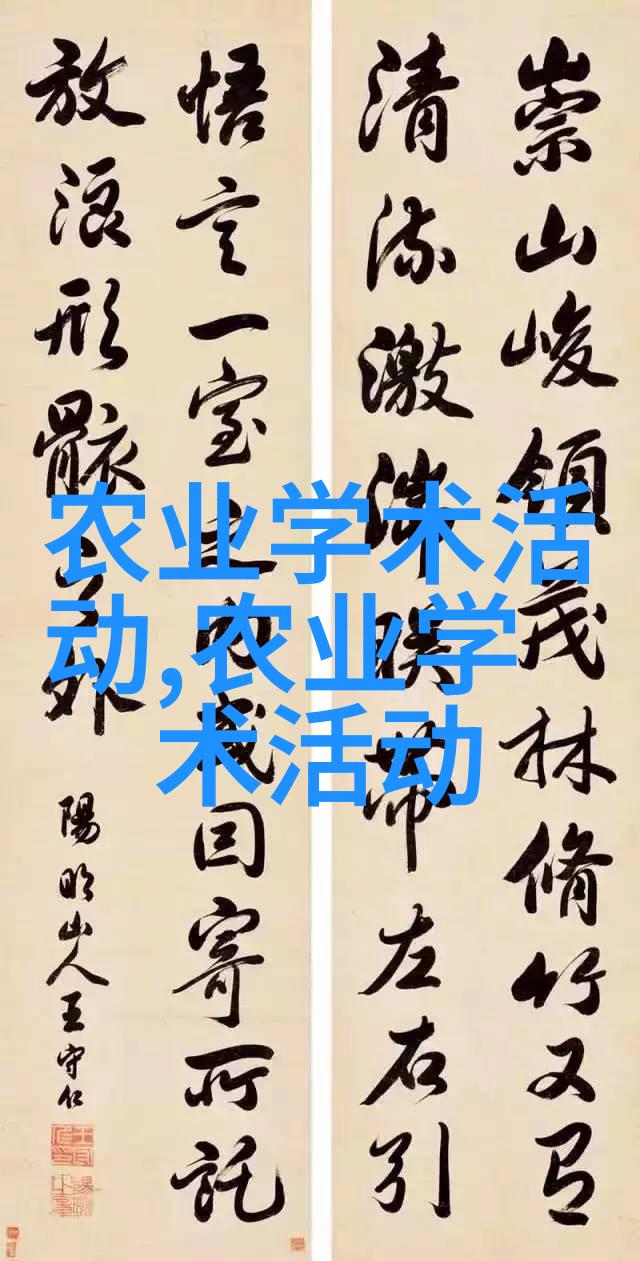 崇山峻領茂林脩竹又有
清流激湍暎帶左右引
悟言一室之內或因寄所託
放浪形骸之外
陽明山人王守仁
农业学术活
动,农业学
术活动